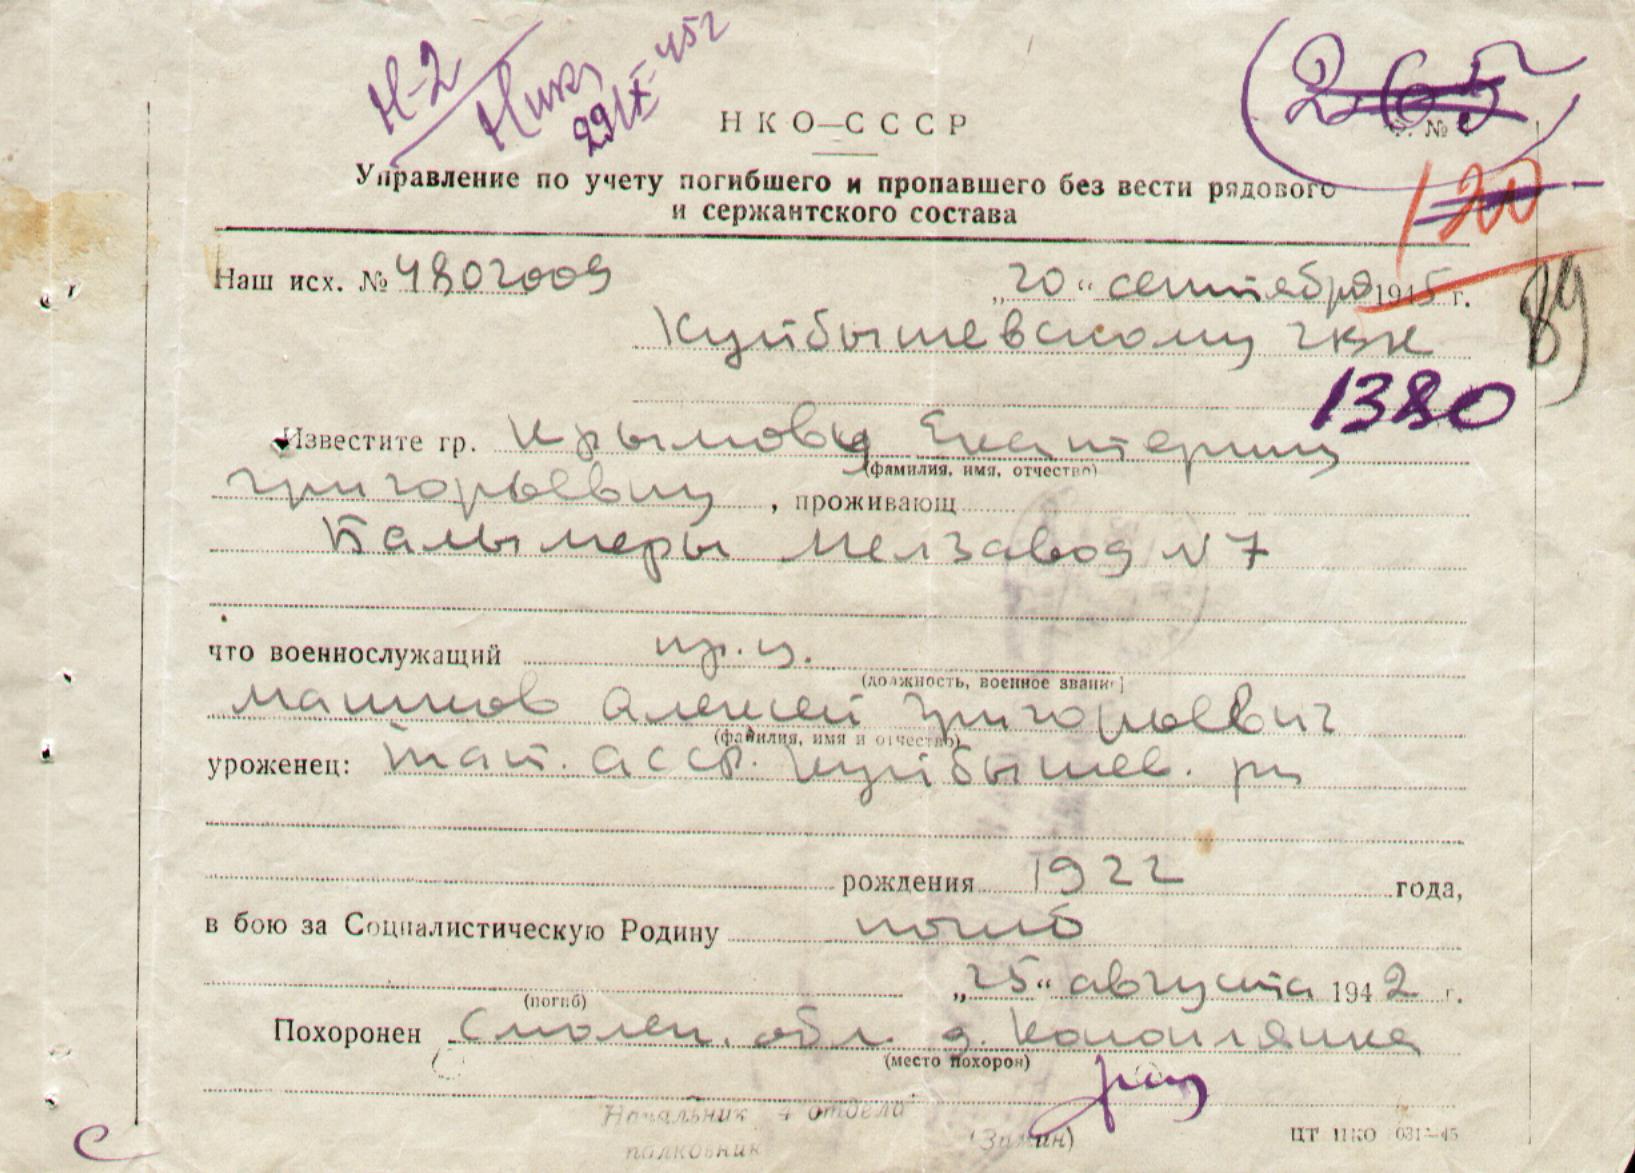 Н-2
29/IX-45г
265
НКО—СССР
№
Управление по учету погибшего и пропавшего без вести рядового
и сержантского состава
120
Наш исх. № 4802009 „20“ сентября 1945 г.
89
Куйбышевскому гвк
1380
Известите гр. Крымову Екатерину
(фамилия, имя, отчество)
Григорьевну, проживающ
Балымеры Мелзавод N 7
что военнослужащий кр. ц.
(должность, военное звание)
Машков Алексей Григорьевич
(фамилия, имя и отчество)
уроженец: Тат. АССР. Куйбышев. рн
рождения 1922 года,
в бою за Социалистическую Родину погиб
„25“ августа 1942 г.
(погиб)
Похоронен Смолен. обл. д. Коноплянка
(место похорон)
Начальник 4 отдела
полковник (Зимин)
ЦТ НКО 031—45